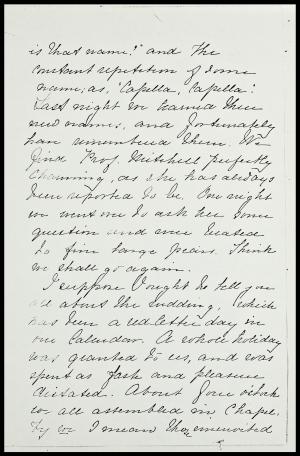 is that name?" and the
constant repetition of some
name; as, 'Capella, Capella.'
Last night we learned three
new names, and fortunately
have remembered them. We
find Prof. Mitchell perfectly
charming, as she has always
been reported to be. One night
we went one to ask her some
question and were treated
to fine large pears. Think
we shall go again.
I suppose I ought to tell you
all about the wedding, which
has been a red letter day in
our Calendar. A whole holiday
was granted to us, and was
spent as taste and pleasure
dictated. About four o'clock
we all assembled in Chapel,
by we I mean the uninvited